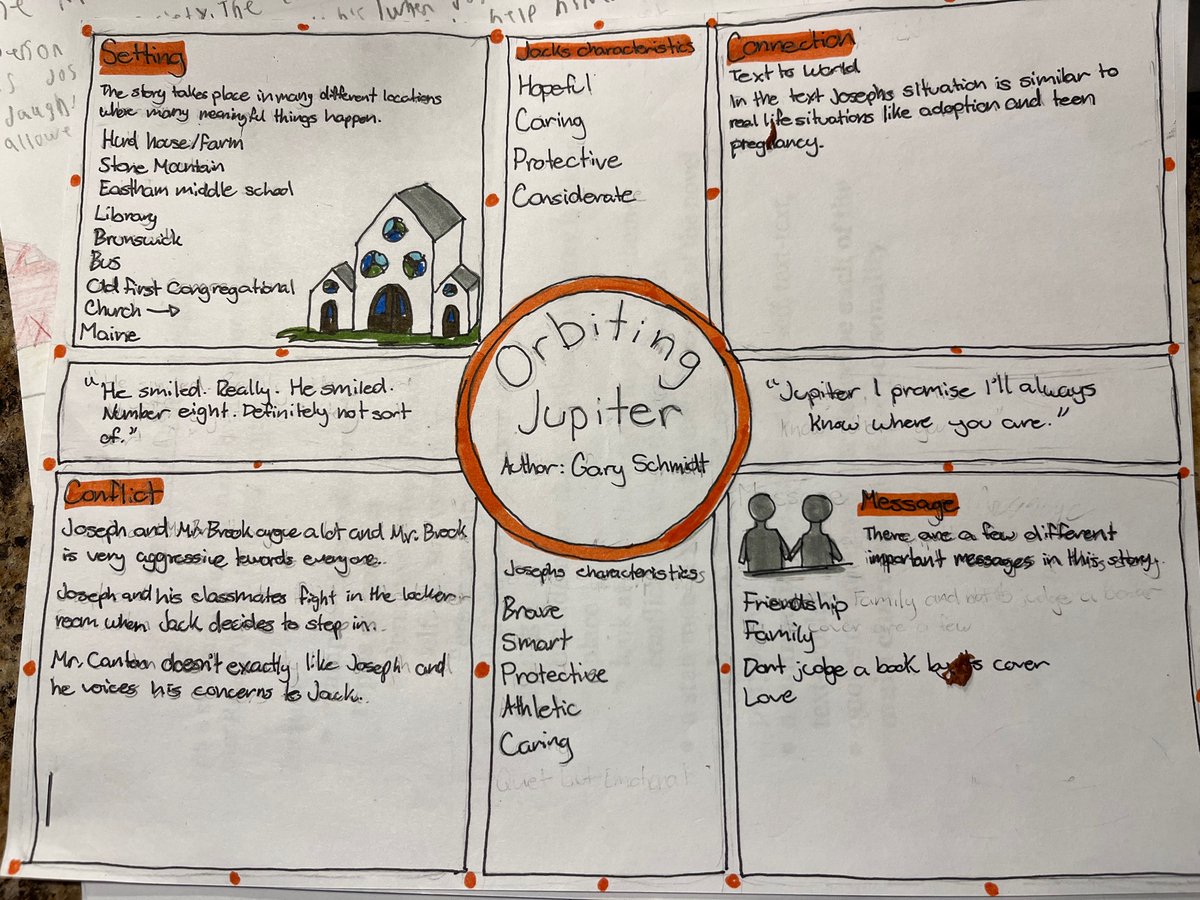 Setting
The story takes place in many different locations
where many meaningful things happen.
Hurd house/farm
Stone Mountain
Eastham middle school
Library
Brunswick
Bus
Old first Congregational
Church →
Maine
Jacks characteristics
Hopeful
Caring
Protective
Considerate
Connection
Text to World
In the text Josephs situation is similar to
real life situations like adoption and teen
pregnancy.
"He smiled. Really. He smiled.
Number eight. Definitely not sort
of."
Orbiting
Jupiter
Author: Gary Schmidt
"Jupiter I promise I'll always
know where you are."
Conflict
Joseph and Mr. Brook argue a lot and Mr. Brook
is very aggressive towards everyone.
Joseph and his classmates fight in the locker
room when Jack decides to step in.
Mr. Canton doesn't exactly like Joseph and
he voices his concerns to Jack.
Josephs characteristics
Brave
Smart
Protective
Athletic
Caring
Quiet but Emotional
Message
There are a few different
important messages in this story.
Friendship
Family
Dont judge a book by cover
Love